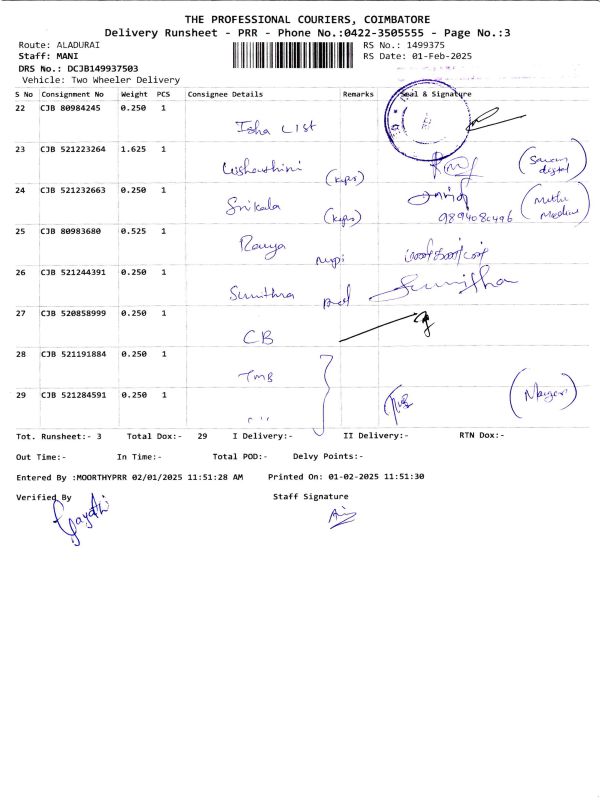 THE PROFESSIONAL COURIERS, COIMBATORE
Delivery Runsheet - PRR - Phone No.:0422-3505555 - Page No.:3
Route: ALADURAI RS No.: 1499375
Staff: MANI RS Date: 01-Feb-2025
DRS No.: DCJB149937503
Vehicle: Two Wheeler Delivery
S No Consignment No Weight PCS Consignee Details Remarks Seal & Signature
22 CJB 80984245 0.250 1
Isha LIST
23 CJB 521223264 1.625 1
(kps)
24 CJB 521232663 0.250 1
Srikala (kps) 9894080496
25 CJB 80983680 0.525 1
Ramya
26 CJB 521244391 0.250 1
Sumithra Sumitha
27 CJB 520858999 0.250 1
CB
28 CJB 521191884 0.250 1
TMB
29 CJB 521284591 0.250 1
Tot. Runsheet:- 3 Total Dox:- 29 I Delivery:- II Delivery:- RTN Dox:-
Out Time:- In Time:- Total POD:- Delvy Points:-
Entered By :MOORTHYPRR 02/01/2025 11:51:28 AM Printed On: 01-02-2025 11:51:30
Verified By Staff Signature
Gayathi